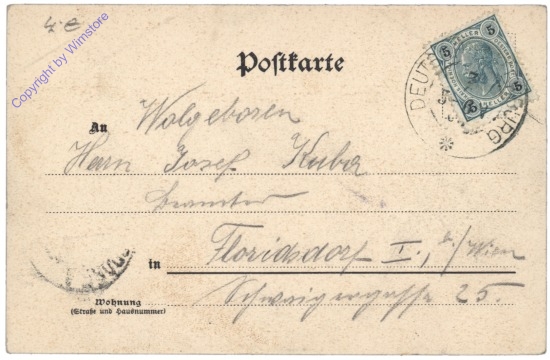 4 e
Copyright by Wimstore
Postkarte
5 HELLER 5
DEUT URG
An
Wolgeboren
Herrn Josef Kuba
Beamter
in Floridsdorf I., b/Wien
Wohnung
(Straße und Hausnummer)
Schwaigergasse 25.